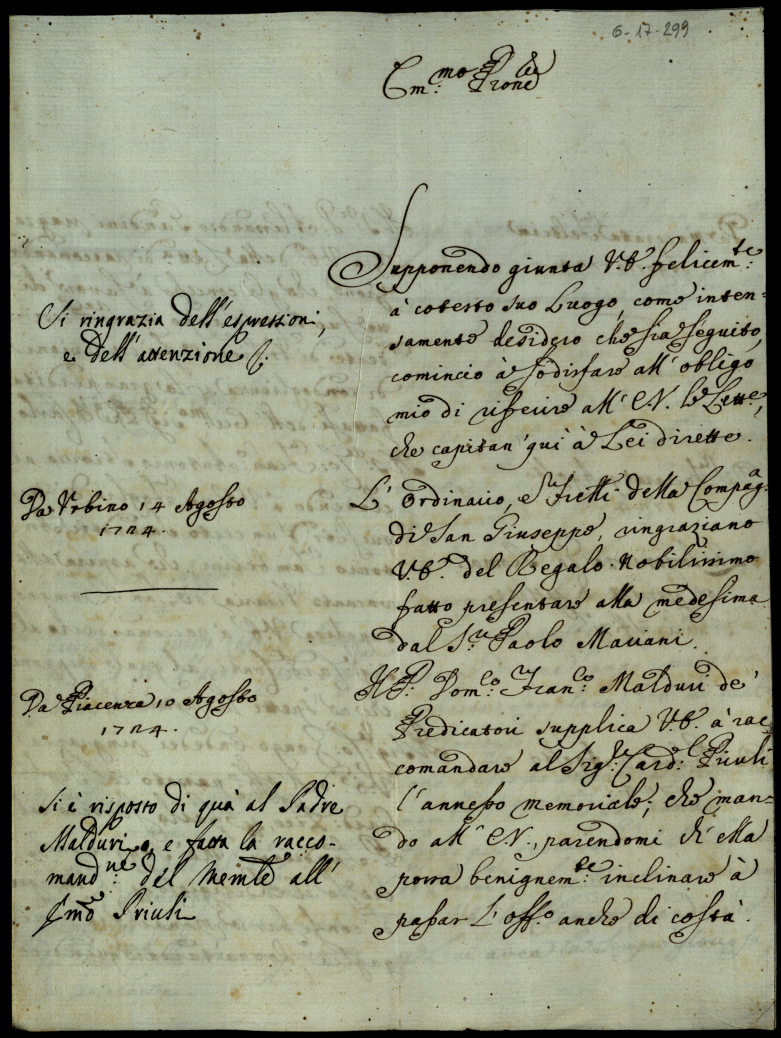 6-17-299
Em:mo Prone
Supponendo giunta V.E. felicem:te
à cotesto suo Luogo, come inten-
samente desidero che sia seguito,
comincio à sodisfare all' obligo
mio di riferire all' E.V. le Lett:e,
che capitan' quì à Lei dirette.
Si ringrazia dell' espressioni,
e dell' attenzione
Da Urbino 14 Agosto
1724.
L' Ordinario, e Frelli della Compag:a
di San Giuseppe, ringraziano
V.E. del Regalo Nobilissimo
fatto presentare alla medesima
dal S:r Paolo Maviani.
Da Piacenza 10 Agosto
1724.
Il P: Dom:co Fran:co Malduri de'
Predicatori supplica V.E. à rac
comandare al Sig:r Card:l Priuli
l' annesso memoriale, che man-
do all' E.V., parendomi ch' Ella
possa benignem:te inclinare à
passar L' off:o anche di costà.
Si è risposto di quà al Padre
Malduri, e fatta la racco-
mand:ne del Memle all'
Emo Priuli